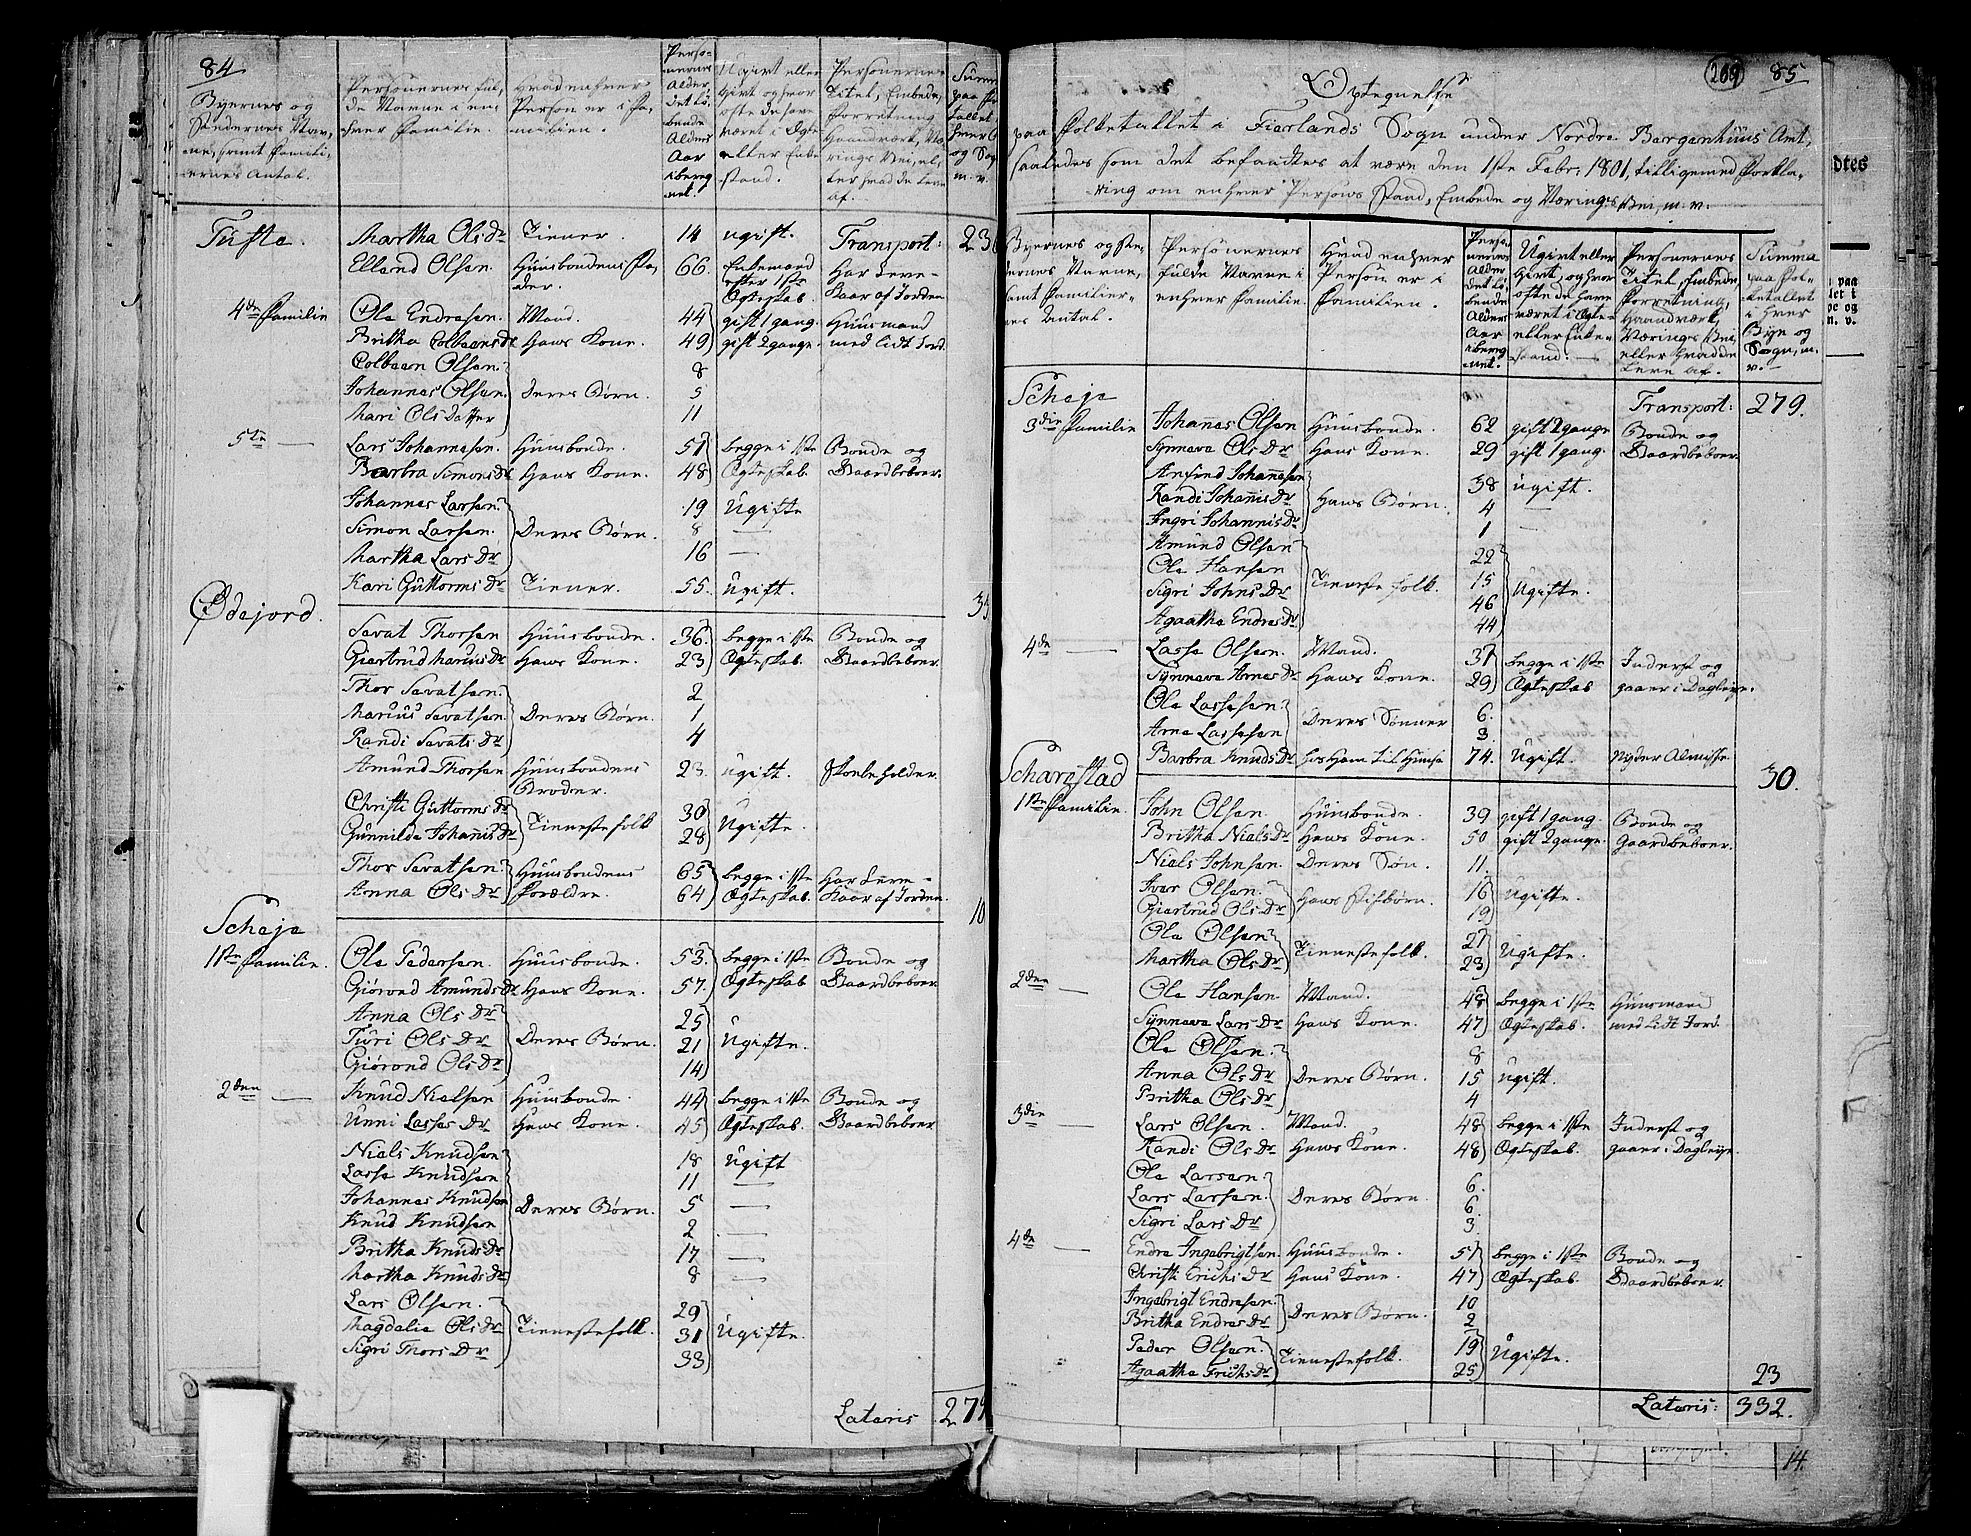 84
Byernes og
Stedernes Nav-
ne, samt Famili-
ernes Antal.
Personernes ful-
de Navne i en-
hver Familie.
Hvad enhver
Person er i Fa-
milien.
Perso-
nernes
Alder,
det lø-
bende
Alders
Aar
ibereg-
net.
Ugivt eller
Givt og hvor
ofte de have
været i Ægte-
eller Enke-
stand.
Personernes
Titel, Embede,
Forretning
Haandværk, Næ-
rings Vei, el-
ler hvad de leve
af.
Summa
Tufte. Martha Ols Dr Tiener. 14 ugift. Transport: 23
Ellend Olsen. Huusbondens Fa- 66. Enkemand Har Leve-
der. efter 1ste Kaar af Jorden
Ægteskab.
4de Familie Ole Endresen. Mand. 44 gift 1 gang. Huusmand
Britha Colbeens Dr Hans Kone. 49 gift 2 gange. med lidt Jord.
Colbeen Olsen. 8
Johannes Olsen. Deres Børn. 5
Mari Ols Datter 11
5te — Lars Johannesen. Huusbonde. 51 begge i 1ste Bonde og
Barbra Simons Dr Hans Kone. 48 Ægteskab. Gaardbeboer.
Johannes Larsen. 19 Ugifte
Simon Larsen. Deres Børn. 8 —
Martha Lars Dr 16 —
Kari Guttorms Dr Tiener. 55. Ugift.
Ødejord.
Sevat Thorsen Huusbonde. 36. begge i 1ste Bonde og
Giertrud Marius Dr Hans Kone. 23 Ægteskab. Gaardbeboer.
Thor Sevatsen. 2
Marius Sevatsen. Deres Børn. 1
Randi Sevats Dr 4
Amund Thorsen Huusbondens 23. ugift. Skoleholder.
Broder.
Christi Guttorms Dr 30
Gunnilde Johannis Dr Tienestefolk 28 Ugifte.
Thor Sevatsen. Huusbondens 65 begge i 1ste Har Leve-
Anna Ols Dr Forældre. 64 Ægteskab. Kaar af Jorden.
10
Scheje
1ste Familie. Ole Pedersen. Huusbonde. 53. begge i 1ste Bonde og
Giørond Amunds Dr Hans Kone. 57. Ægteskab Gaardbeboer
Anna Ols Dr 25
Turi Ols Dr Deres Børn. 21 Ugifte.
Giørond Ols Dr 14
2den — Knud Nielsen Huusbonde. 44 begge i 1ste Bonde og
Unni Lasses Dr Hans Kone. 45 Ægteskab. Gaardbeboer
Niels Knudsen 18 Ugift
Lasse Knudsen 11 —
Johannes Knudsen Deres Børn. 5 —
Knud Knudsen 2 —
Britha Knuds Dr 17 —
Martha Knuds Dr 8 —
Lars Olsen. 29
Magdalie Ols Dr Tienestefolk. 31 Ugifte.
Sigri Thors Dr 33
Lateris 279
269 85
Optegnelse
paa Folketallet i Fierlands Sogn under Nordre Bergenhuus Amt,
saaledes som det befandtes at være den 1ste Febr: 1801, tilligemed Forkla-
ring om enhver Persons Stand, Embede og Nærings Vei, m. v.
Byernes og Ste-
dernes Navne,
samt Familier-
nes Antal.
Personernes
fulde Navne i
enhver Familie.
Hvad enhver
Person er i
Familien.
Perso-
nernes
Alder
det lø-
bende
Alders
Aar
ibereg-
net.
Ugivt eller
Givt, og hvor
ofte de have
været i Ægte-
eller Enke-
stand.
Personernes
Titel, Embede,
Forretning,
Haandværk,
Nærings Vei,
eller hvad de
leve af.
Summa
paa Fol-
ketallet
i hver
Bye og
Sogn, m.
v.
Scheje Transport: 279.
3die Familie Johannes Olsen Huusbonde. 62 gift 2 gange Bonde og
Synneve Ols Dr Hans Kone. 29 gift 1 gang. Gaardbeboer.
Anfind Johannesen 38 ugift.
Randi Johannis Dr Hans Børn. 4 —
Ingri Johannis Dr 1 —
Amund Olsen 22
Ole Hansen Tieneste folk. 15 Ugifte.
Sigri Johns Dr 46
Agaatha Endres Dr 44
4de — Lasse Olsen. Mand. 37 begge i 1ste Inderst og
Synneva Arnes Dr Hans Kone. 29 Ægteskab gaaer i Dagleye.
Ole Lassesen. Deres Sønner 6.
Arne Lassesen 3.
Barbra Knuds Dr hos ham til Huuse 74. Ugift. Nyder Almisse
30.
Scharestad
1ste Familie. John Olsen Huusbonde. 39 gift 1 gang. Bonde og
Britha Niels Dr Hans Kone. 50 gift 2 gange. Gaardbeboer.
Niels Johnsen. Deres Søn. 11.
Iver Olsen. Hans Stifbørn. 16 Ugifte.
Giertrud Ols Dr 19
Ole Olsen Tienestefolk. 27 Ugifte.
Martha Ols Dr 23
2den — Ole Hansen. Mand. 48 begge i 1ste Huusmand
Synneva Lars Dr Hans Kone. 47 Ægteskab. med lidt Jord.
Ole Olsen. 8
Anna Ols Dr Deres Børn. 15 ugift.
Britha Ols Dr 4
3die — Lars Olsen. Mand. 48 begge i 1ste Inderst og
Randi Ols Dr Hans Kone. 48 Ægteskab. gaaer i Dagleye.
Ole Larsen. 6.
Lars Larsen. Deres Børn. 6.
Sigri Lars Dr 3.
4de — Endre Ingebrigtsen. Huusbonde. 57 begge i 1ste Bonde og
Christi Erichs Dr Hans Kone. 47 Ægteskab. Gaardbeboer.
Ingebrigt Endresen. Deres Børn. 10
Britha Endres Dr 2
Peder Olsen. Tienestefolk. 19 Ugifte.
Agaatha Erichs Dr 25
23
Lateris: 332.
14.